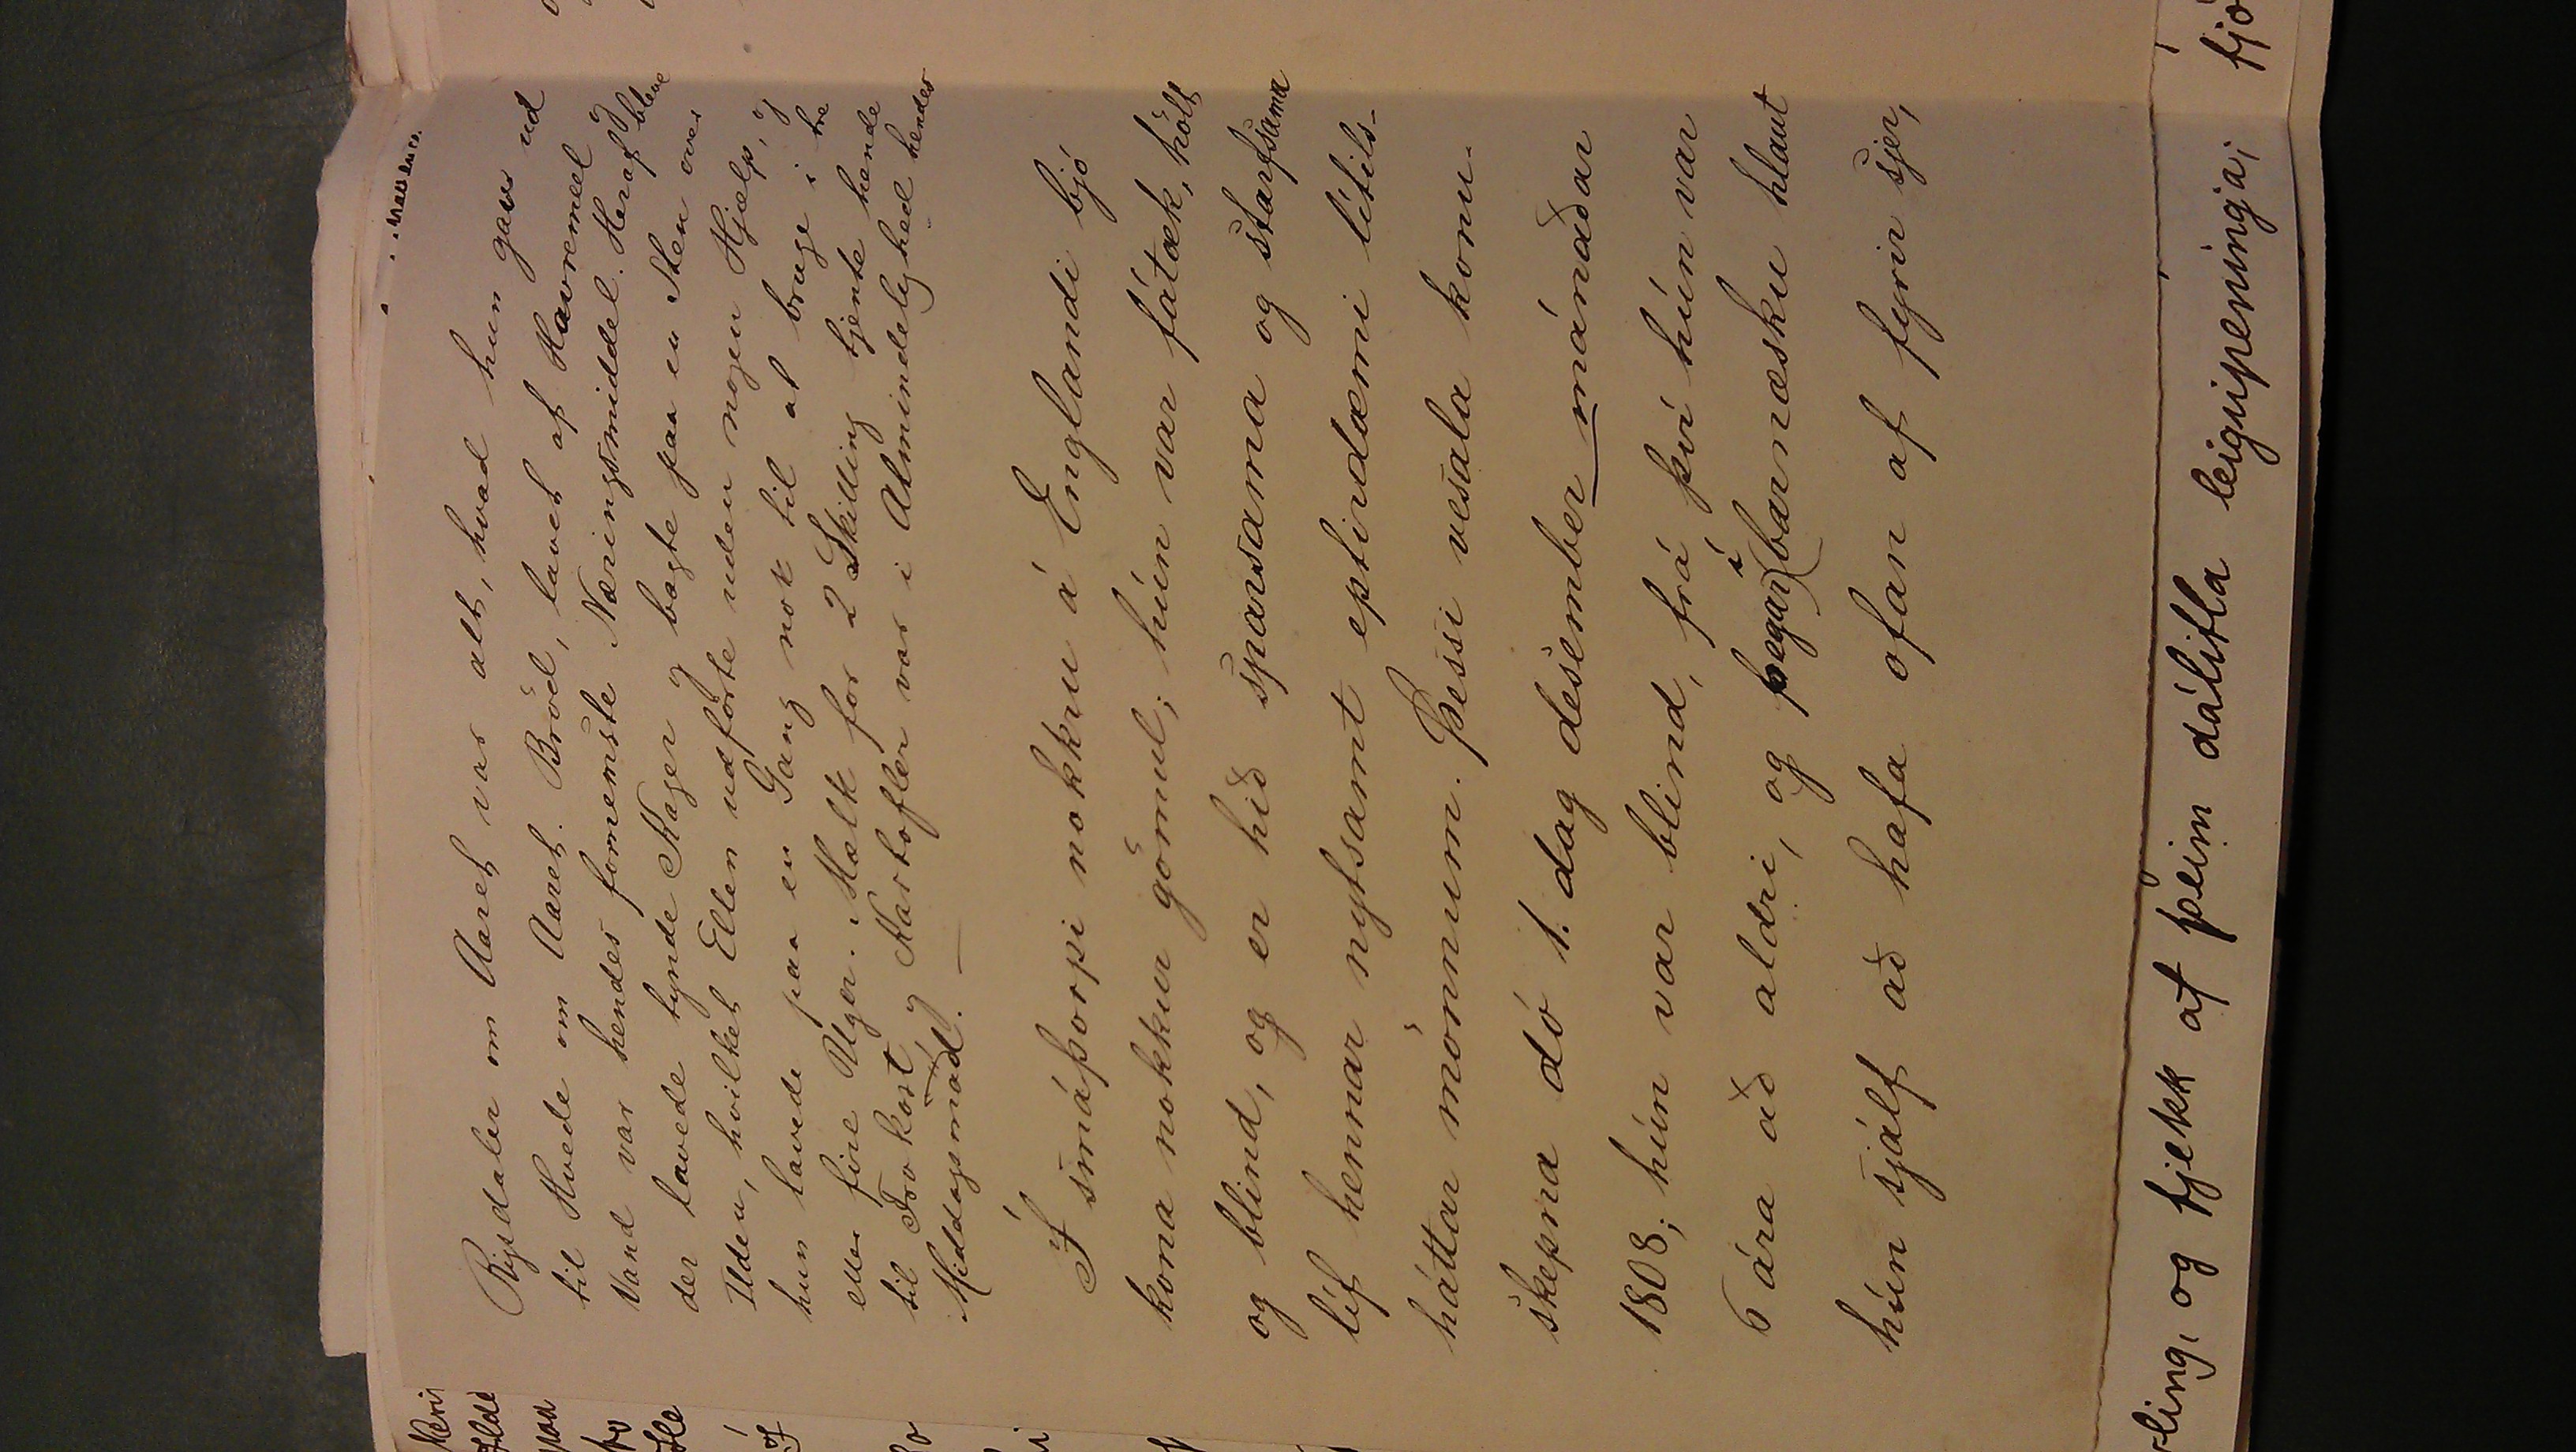 Rigsdaler om Aaret var alt, hvad hun gav ud
til Hvede om Aaret. Bröd, lavet af Havremeel og
Vand var hendes fornemste Næringsmiddel. Heraf blev
der lavede tynde Kager og bagte paa en Sten over
Ilden, hvilket Ellen udförte uden nogen Hjælp, og
hun lavede paa en Gang nok til at bruge i tre
eller fire Uger. Mælk for 2 Skilling tjente hende
til Frokost, og Kartofler var i Almindelighed hendes
Middagsmad. —
Í smáþorpi nokkru á Englandi bjó
kona nokkur gömul; hún var fátæk, hölt
og blind, og er hið sparsama og starfsama
líf hennar nytsamt eptirdæmi lítils-
háttar mönnum. Þessi vesala konu
skepna dó 1. dag desember mánaðar
1808; hún var blind, frá því hún var
6 ára að aldri, og þegar í barnæsku hlaut
hún sjálf að hafa ofan af fyrir sjer,
og fjekk af þeim dálitla leigupeninga;